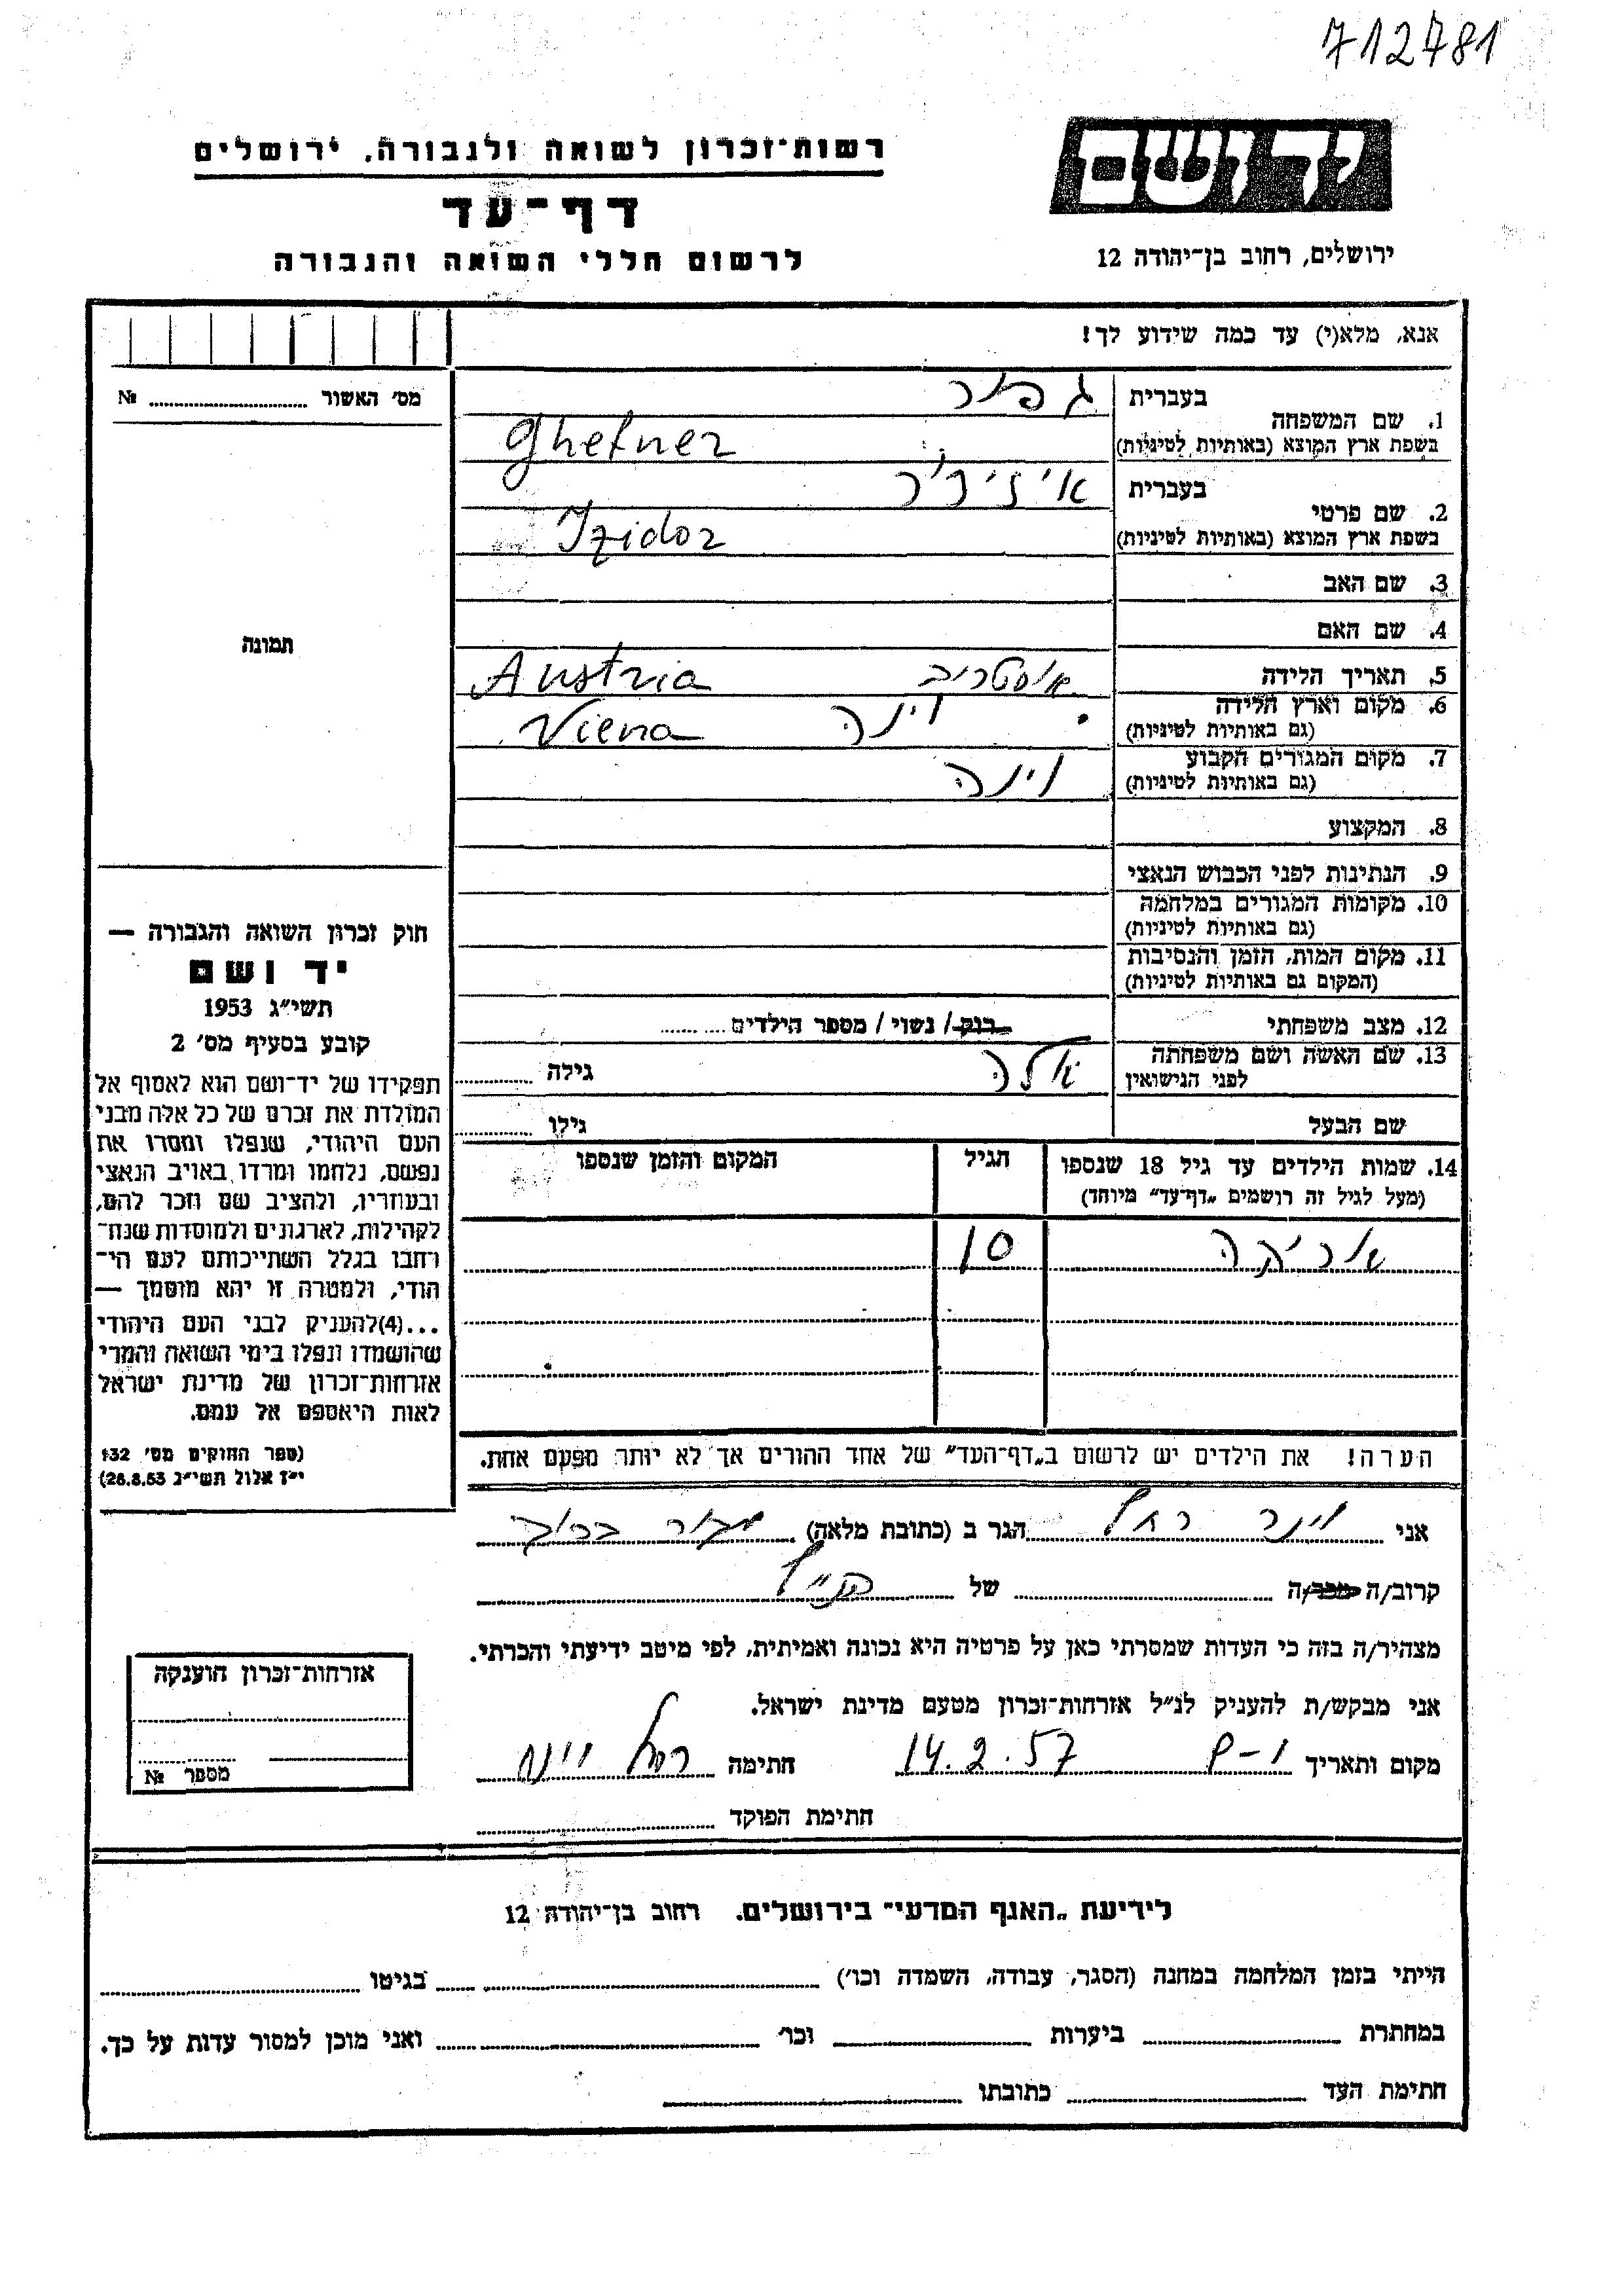 712781
יד ושם
רשות־זכרון לשואה ולגבורה, ירושלים
דף־עד
לרשום חללי השואה והגבורה
ירושלים, רחוב בן־יהודה 12
אנא, מלא(י) עד כמה שידוע לך!
מס' האשור № 
1. שם המשפחה
בעברית גפנר
בשפת ארץ המוצא (באותיות לטיניות) Ghefner
2. שם פרטי
בעברית איזידור
בשפת ארץ המוצא (באותיות לטיניות) Izidor
3. שם האב
4. שם האם
תמונה
5. תאריך הלידה אוסטריה Austria
6. מקום וארץ הלידה וינה Viena
(גם באותיות לטיניות)
7. מקום המגורים הקבוע וינה
(גם באותיות לטיניות)
8. המקצוע
9. הנתינות לפני הכבוש הנאצי
10. מקומות המגורים במלחמה
(גם באותיות לטיניות)
11. מקום המות, הזמן והנסיבות
(המקום גם באותיות לטיניות)
12. מצב משפחתי רווק / נשוי / מספר הילדים
13. שם האשה ושם משפחתה אלה גילה
לפני הנישואין
שם הבעל גילו
14. שמות הילדים עד גיל 18 שנספו הגיל המקום והזמן שנספו
(מעל לגיל זה רושמים „דף־עד" מיוחד)
אריקה 10
הערה! את הילדים יש לרשום ב„דף־העד" של אחד ההורים אך לא יותר מפעם אחת.
חוק זכרון השואה והגבורה —
יד ושם
תשי"ג 1953
קובע בסעיף מס' 2
תפקידו של יד־ושם הוא לאסוף אל
המולדת את זכרם של כל אלה מבני
העם היהודי, שנפלו ומסרו את
נפשם, נלחמו ומרדו באויב הנאצי
ובעוזריו, ולהציב שם וזכר להם,
לקהילות, לארגונים ולמוסדות שנח־
רחבו בגלל השתייכותם לעם הי־
הודי, ולמטרה זו יהא מוסמך —
...(4)להעניק לבני העם היהודי
שהושמדו ונפלו בימי השואה והמרי
אזרחות־זכרון של מדינת ישראל
לאות היאספם אל עמם.
(ספר החוקים מס' 132
י"ז אלול תשי"ג 28.8.53)
אני וינר רחל הגר ב (כתובת מלאה)
קרוב/ה מכר/ה של הנ"ל
מצהיר/ה בזה כי העדות שמסרתי כאן על פרטיה היא נכונה ואמיתית, לפי מיטב ידיעתי והכרתי.
אני מבקש/ת להעניק לנ"ל אזרחות־זכרון מטעם מדינת ישראל.
מקום ותאריך 14.2.57 חתימה רחל וינר
חתימת הפוקד
אזרחות־זכרון הוענקה
מספר №
לידיעת „האגף המדעי" בירושלים. רחוב בן־יהודה 12
הייתי בזמן המלחמה במחנה (הסגר, עבודה, השמדה וכו') בגיטו
במחתרת ביערות וכו' ואני מוכן למסור עדות על כך.
חתימת העד כתובתו